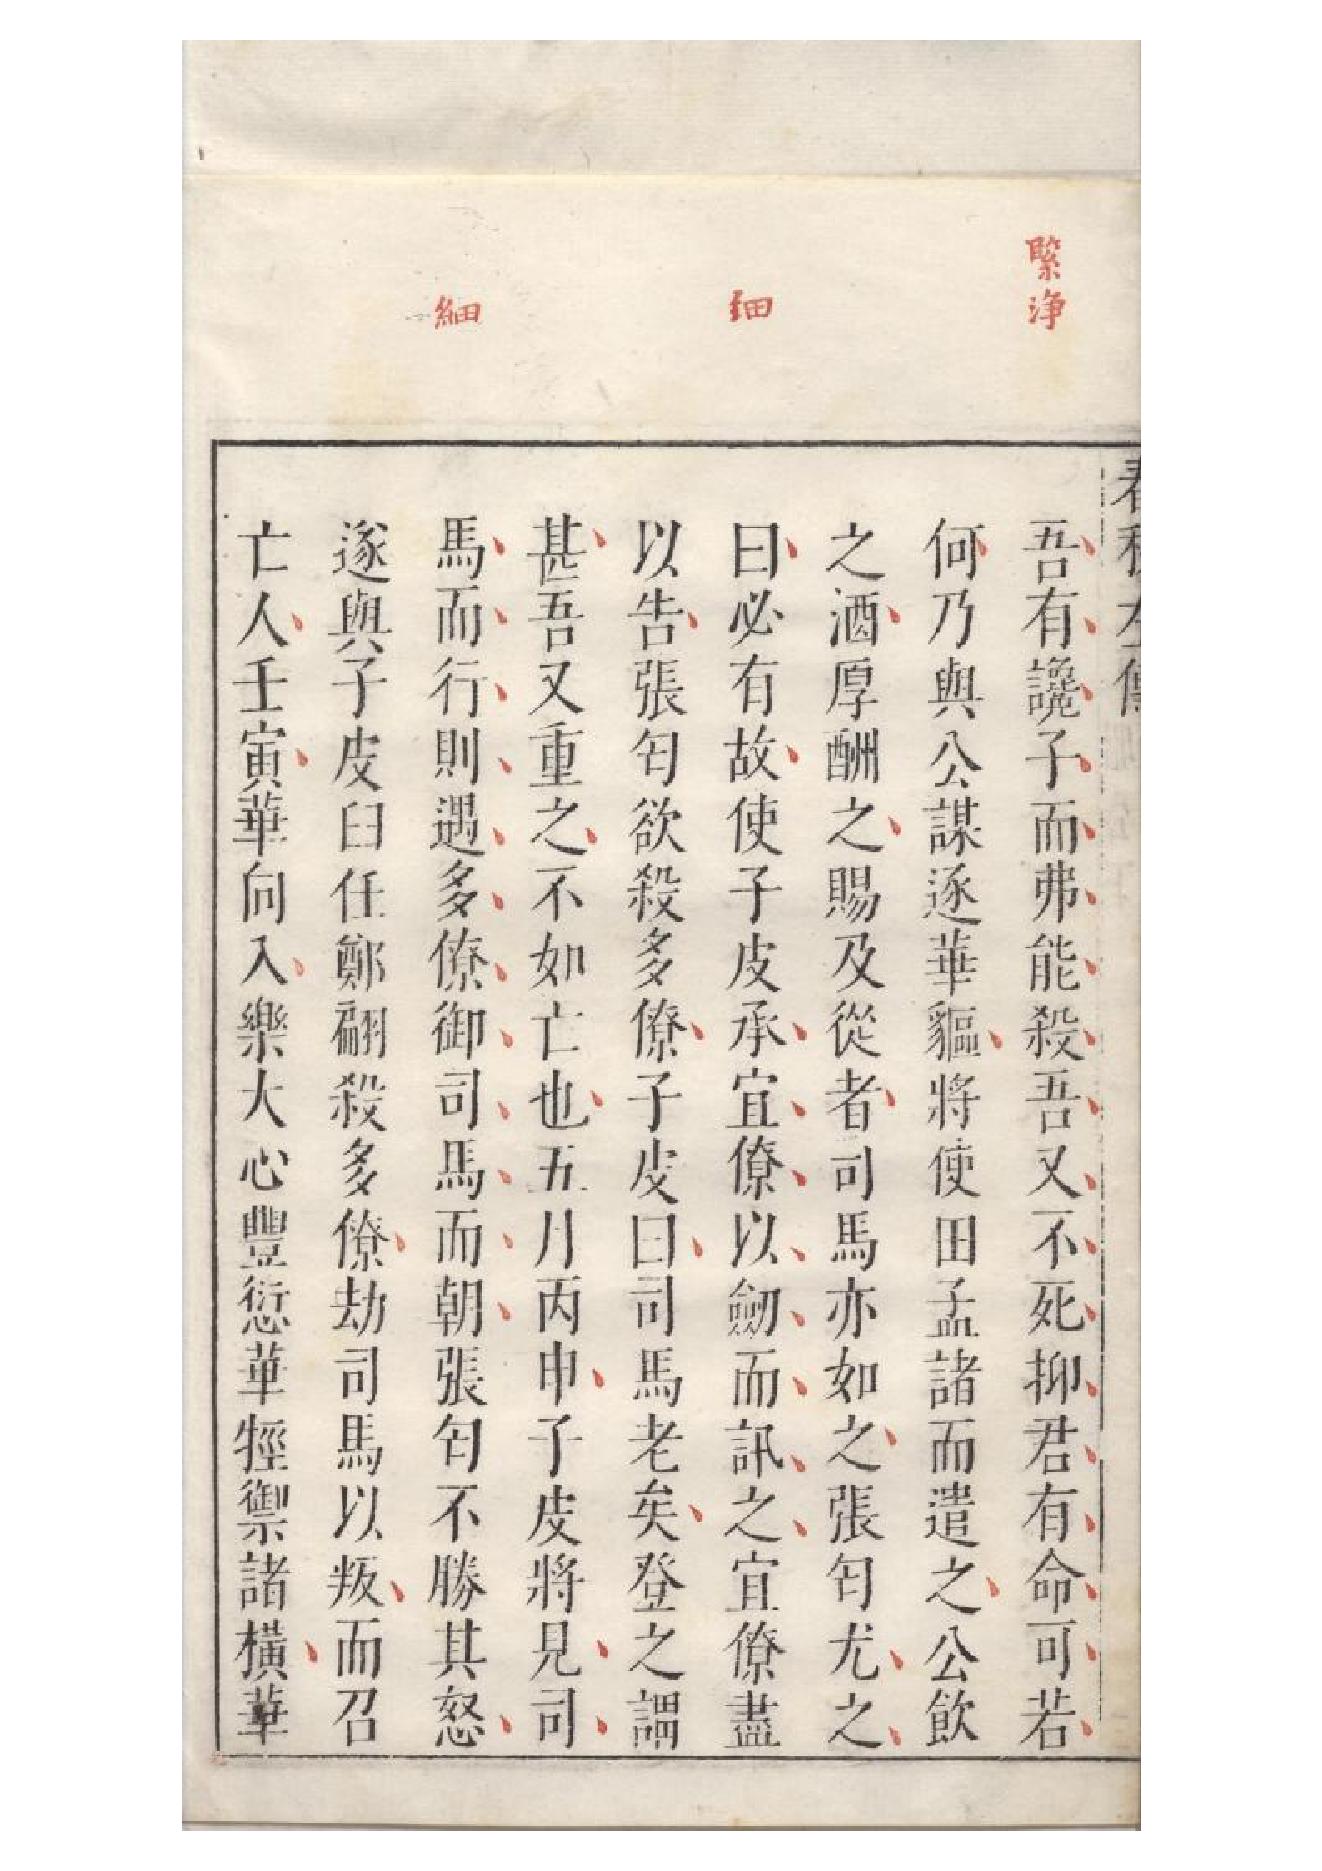 緊淨
細
細
春秋左傳
吾有讒子而弗能殺吾又不死抑君有命可若
何乃與公謀逐華貙將使田孟諸而遣之公飲
之酒厚酬之賜及從者司馬亦如之張匄尤之
曰必有故使子皮承宜僚以劒而訊之宜僚盡
以告張匄欲殺多僚子皮曰司馬老矣登之謂
甚吾又重之不如亡也五月丙申子皮將見司
馬而行則遇多僚御司馬而朝張匄不勝其怒
遂與子皮臼任鄭翩殺多僚劫司馬以叛而召
亡人壬寅華向入樂大心豐愆華牼禦諸橫華